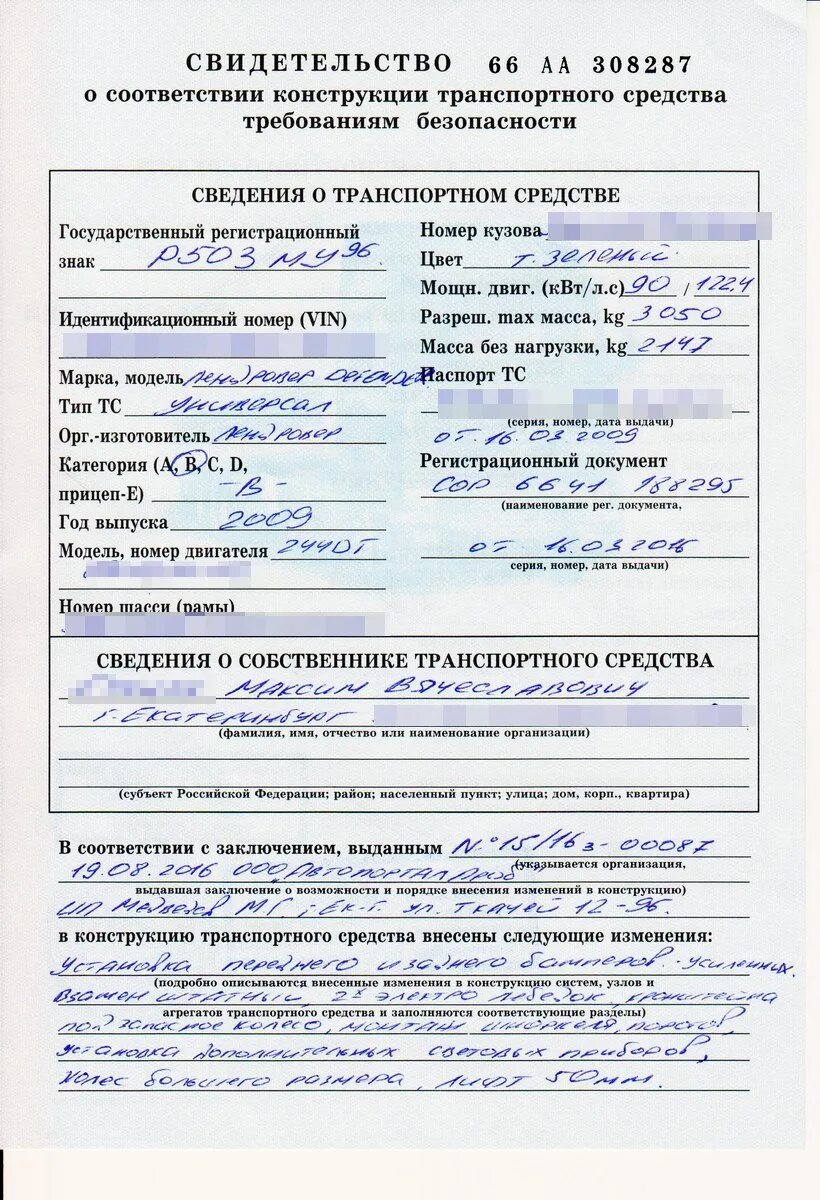 СВИДЕТЕЛЬСТВО 66 АА 308287
о соответствии конструкции транспортного средства
требованиям безопасности
СВЕДЕНИЯ О ТРАНСПОРТНОМ СРЕДСТВЕ
Государственный регистрационный
знак Р503МУ96
Идентификационный номер (VIN)
Марка, модель Ленд ровер DEFENDER
Тип ТС универсал
Орг.-изготовитель Ленд ровер
Категория (А, В, С, D,
прицеп-Е) -В-
Год выпуска 2009
Модель, номер двигателя 244DT
Номер шасси (рамы)
Номер кузова
Цвет т. зеленый
Мощн. двиг. (кВт/л.с) 90 / 122,4
Разреш. max масса, kg 3050
Масса без нагрузки, kg 2147
Паспорт ТС
(серия, номер, дата выдачи)
от 16.03.2009
Регистрационный документ
СОР 6641 188295
(наименование рег. документа,
от 16.03.2016
серия, номер, дата выдачи)
СВЕДЕНИЯ О СОБСТВЕННИКЕ ТРАНСПОРТНОГО СРЕДСТВА
Максим Вячеславович
г. Екатеринбург
(фамилия, имя, отчество или наименование организации)
(субъект Российской Федерации; район; населенный пункт; улица; дом, корп., квартира)
В соответствии с заключением, выданным №15/16з-00087
(указывается организация,
19.08.2016 ООО "Автопортал
выдавшая заключение о возможности и порядке внесения изменений в конструкцию)
ИП М.Г. г. Ек-г. ул. Ткачей 12-96.
в конструкцию транспортного средства внесены следующие изменения:
Установка переднего и заднего бамперов - усиленных.
(подробно описываются внесенные изменения в конструкцию систем, узлов и
Взамен штатных, 2х электро лебедок, кронштейна
агрегатов транспортного средства и заполняются соответствующие разделы)
под запасное колесо, монтаж шноркеля, порогов,
установка дополнительных световых приборов,
колес большего размера, лифт 50мм.